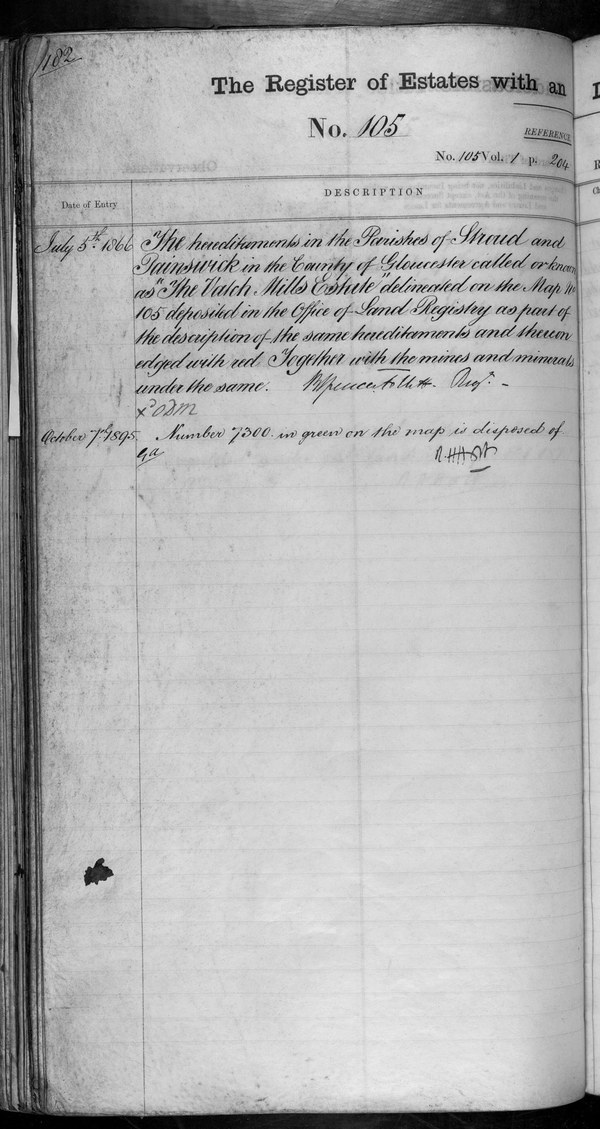 182
The Register of Estates with an
No. 105
REFERENCE
No. 105 Vol. 1 p. 204
Date of Entry
DESCRIPTION
July 5th 1866 The hereditaments in the Parishes of Stroud and
Painswick in the County of Gloucester called or known
as "The Vatch Mills Estate" delineated on the Map No
105 deposited in the Office of Land Registry as part of
the description of the same hereditaments and thereon
edged with red Together with the mines and minerals
under the same. Regr.
October 7th 1895. Number 7300 in green on the map is disposed of